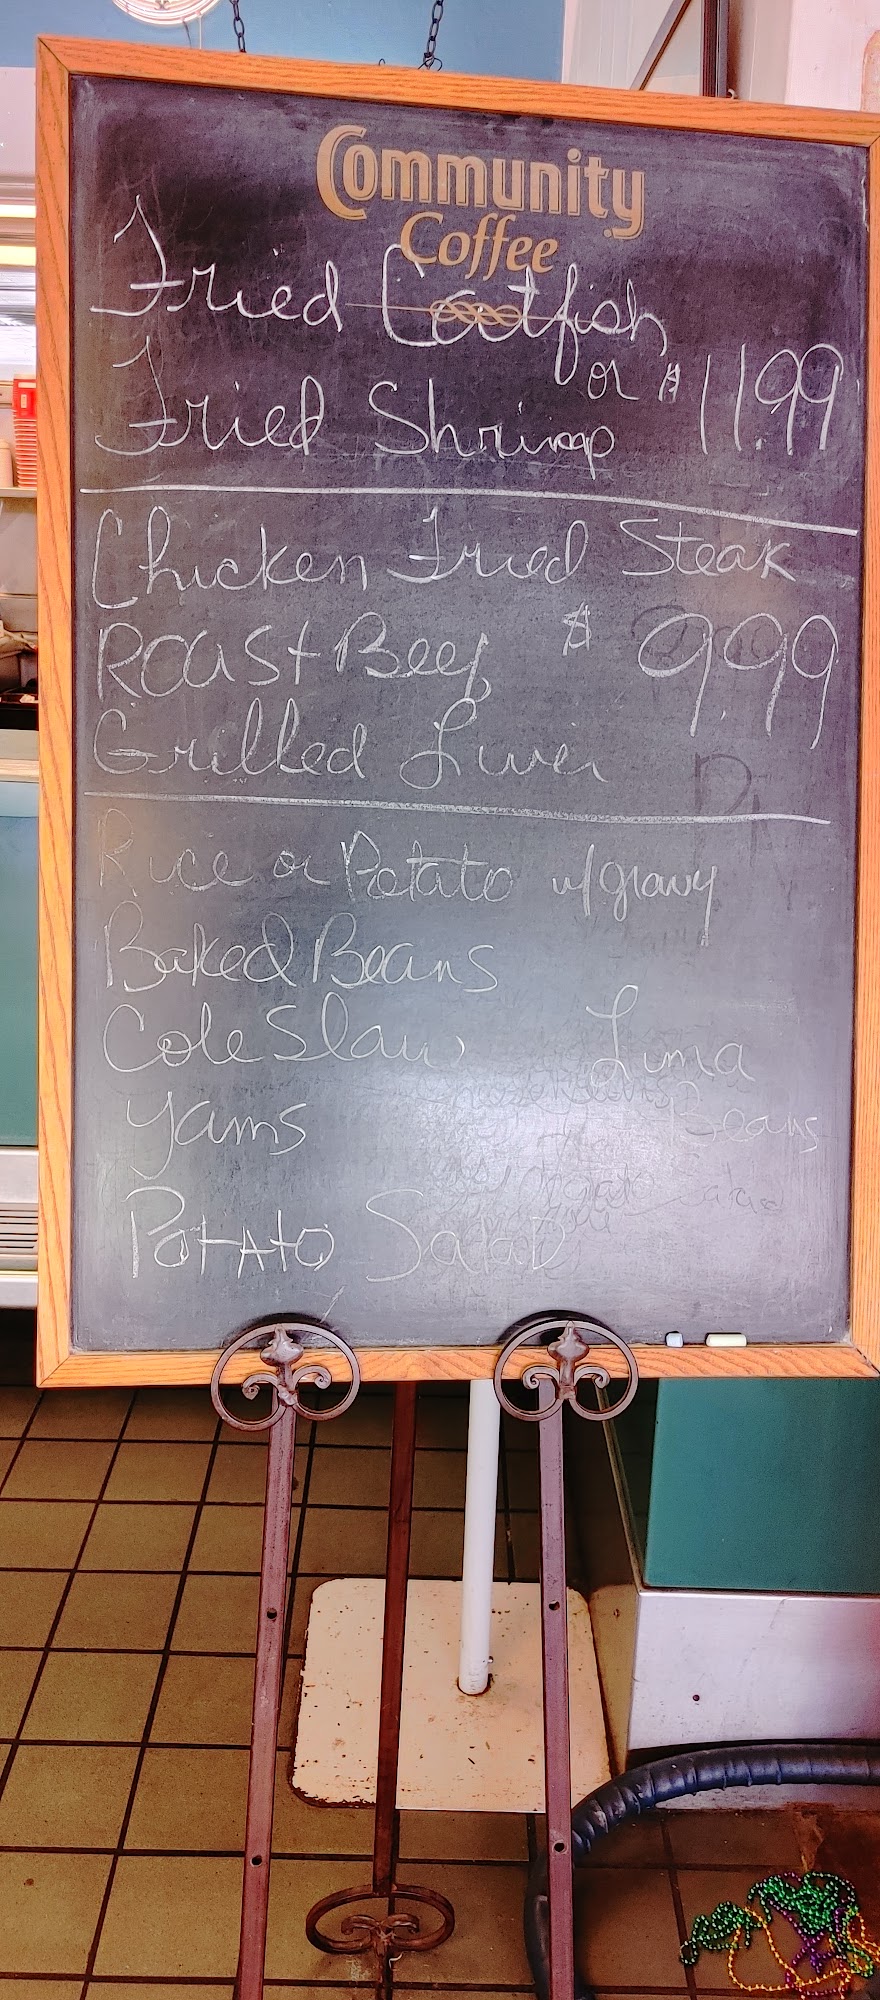 Community
Coffee
Fried Catfish
or $11.99
Fried Shrimp
Chicken Fried Steak
Roast Beef $9.99
Grilled Liver
Rice or Potato w/gravy
Baked Beans
Cole Slaw
Lima
Yams
Beans
Potato Salad